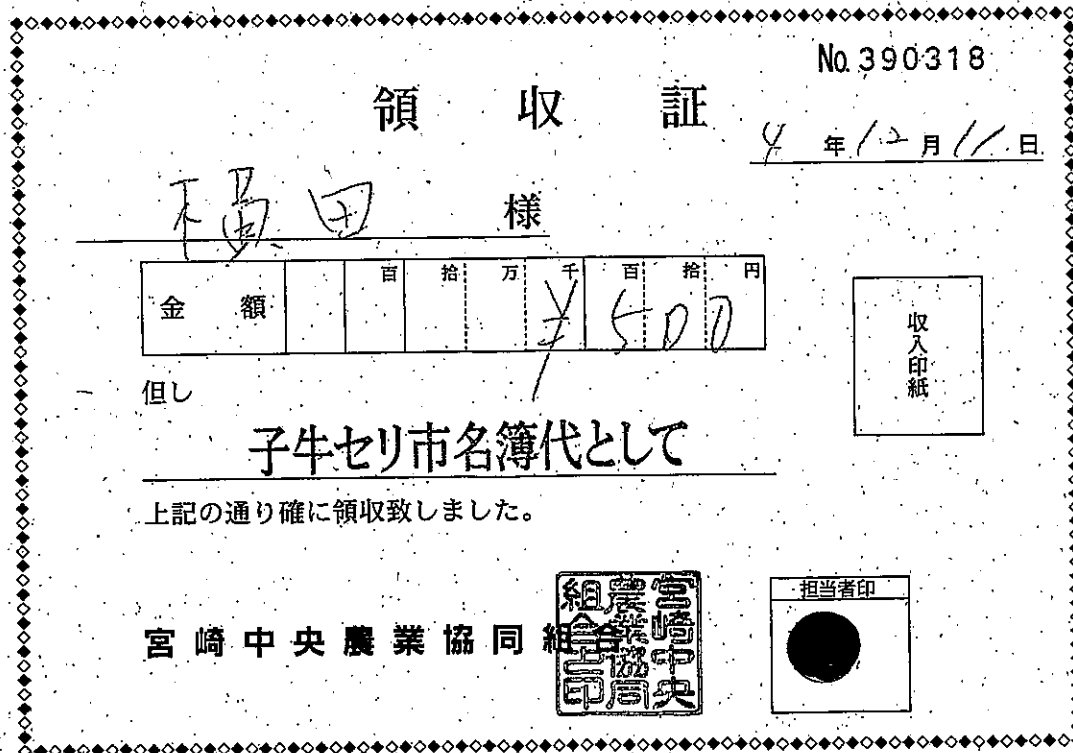 No.390318
領収証
4年12月11日
横田 様
金額 百拾万千百拾円
¥500
収入印紙
但し
子牛セリ市名簿代として
上記の通り確に領収致しました。
宮崎中央農業協同組合
宮崎中央農業協同組合之印
担当者印